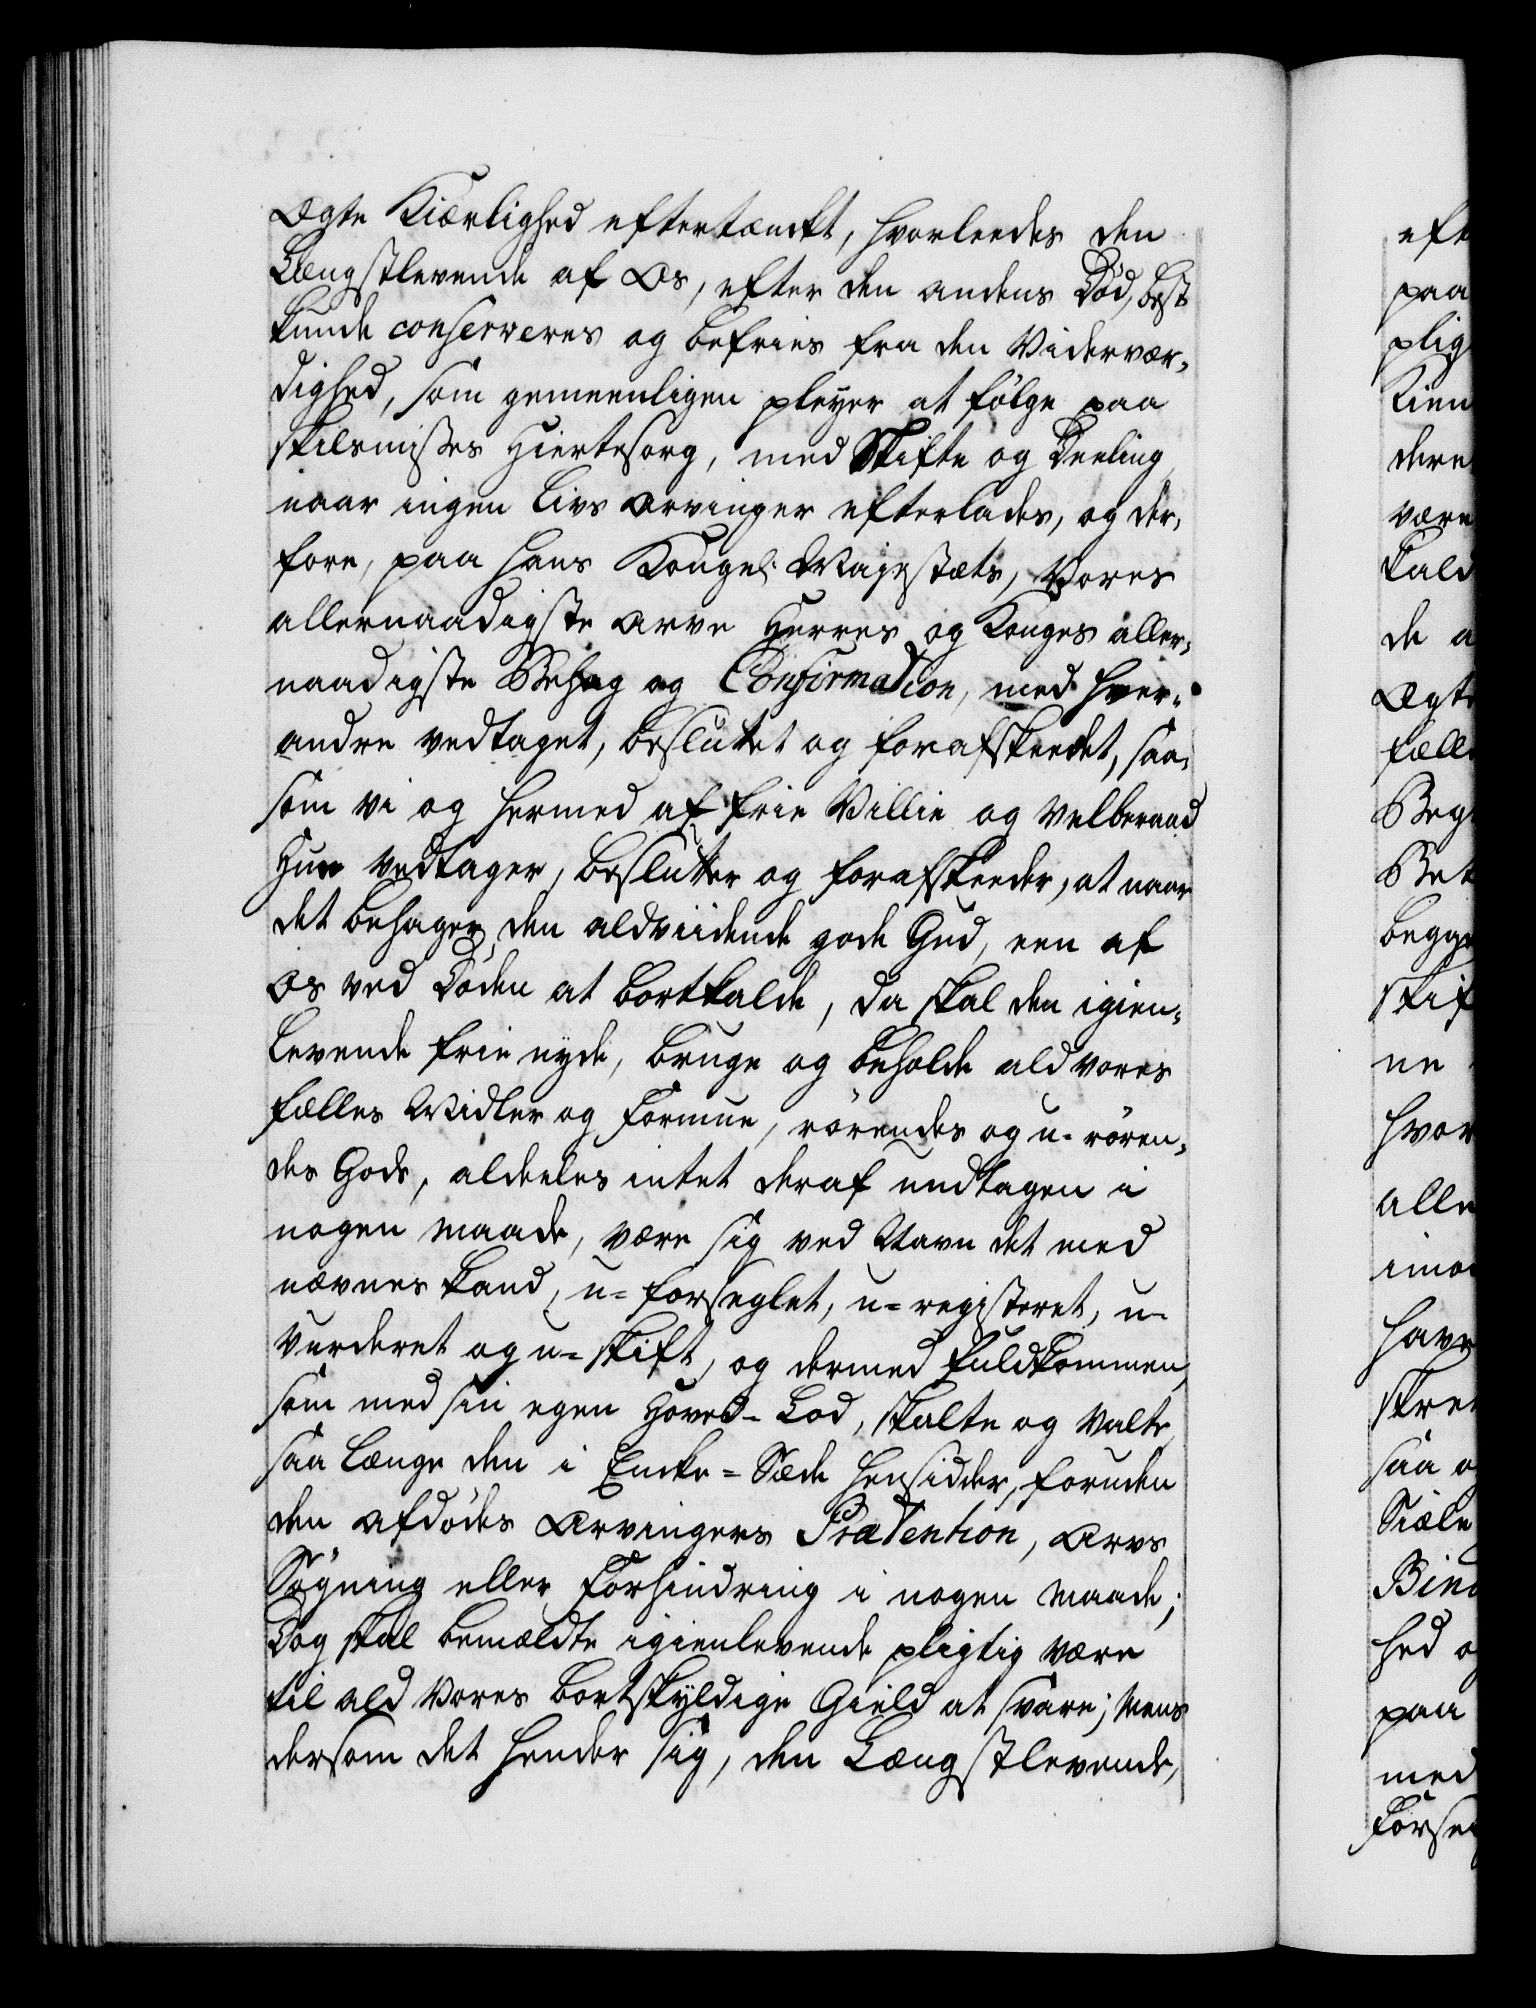 Ægte Kiærlighed eftertænckt, hvorleedes den
Længstlevende af Os, efter den andens Död, best
kunde conserveres og befries fra den Vidervær-
dighed, som gemeenligen pleyer at fölge paa
skilsmisses Hiertesorg, med Skifte og Deeling
naar ingen Livs Arvinger efterlades, og der-
fore, paa Hans Kongel: Majestæts, Vores
allernaadigste Arve Herres og Konges aller-
naadigste Behag og Confirmation, med hver-
andre vedtaget, besluttet og forafskeedet, saa-
som vi og hermed af frie Villie og velberaad
Hue vedtager, beslutter og forafskeeder, at naar
det behager den aldviidende gode Gud, een af
os ved Döden at bortkalde, da skal den igien-
levende frie nyde, bruge og beholde ald vores
fælles Midler og Formue, rörendes og u-rören-
des Gods, aldeeles intet deraf undtagen i
nogen maade, være sig ved Navn det med
nævnes kand, u-forseglet, u-registeret, u-
vurderet og u-skift, og dermed fuldkommen,
som med sin egen Hoved-Lod, skalte og valte,
saa længe den i Encke-Sæde hensidder, foruden
den afdödes Arvingers Prætention, Arvs
Sögning eller Forhindring i nogen maade;
Dog skal bemældte igienlevende pligtig være
til ald Vores bortskyldige Gield at svare; Mens
dersom det hender sig, den Længstlevende,
eft
paa
plig
Kien
dere
være
kald
de a
Ægte
fælle
Beg
Bet
begge
skif
ne
hvor
alle
imod
have
skre
saa o
Siæle
Bind
hed o
paa
med
Forse